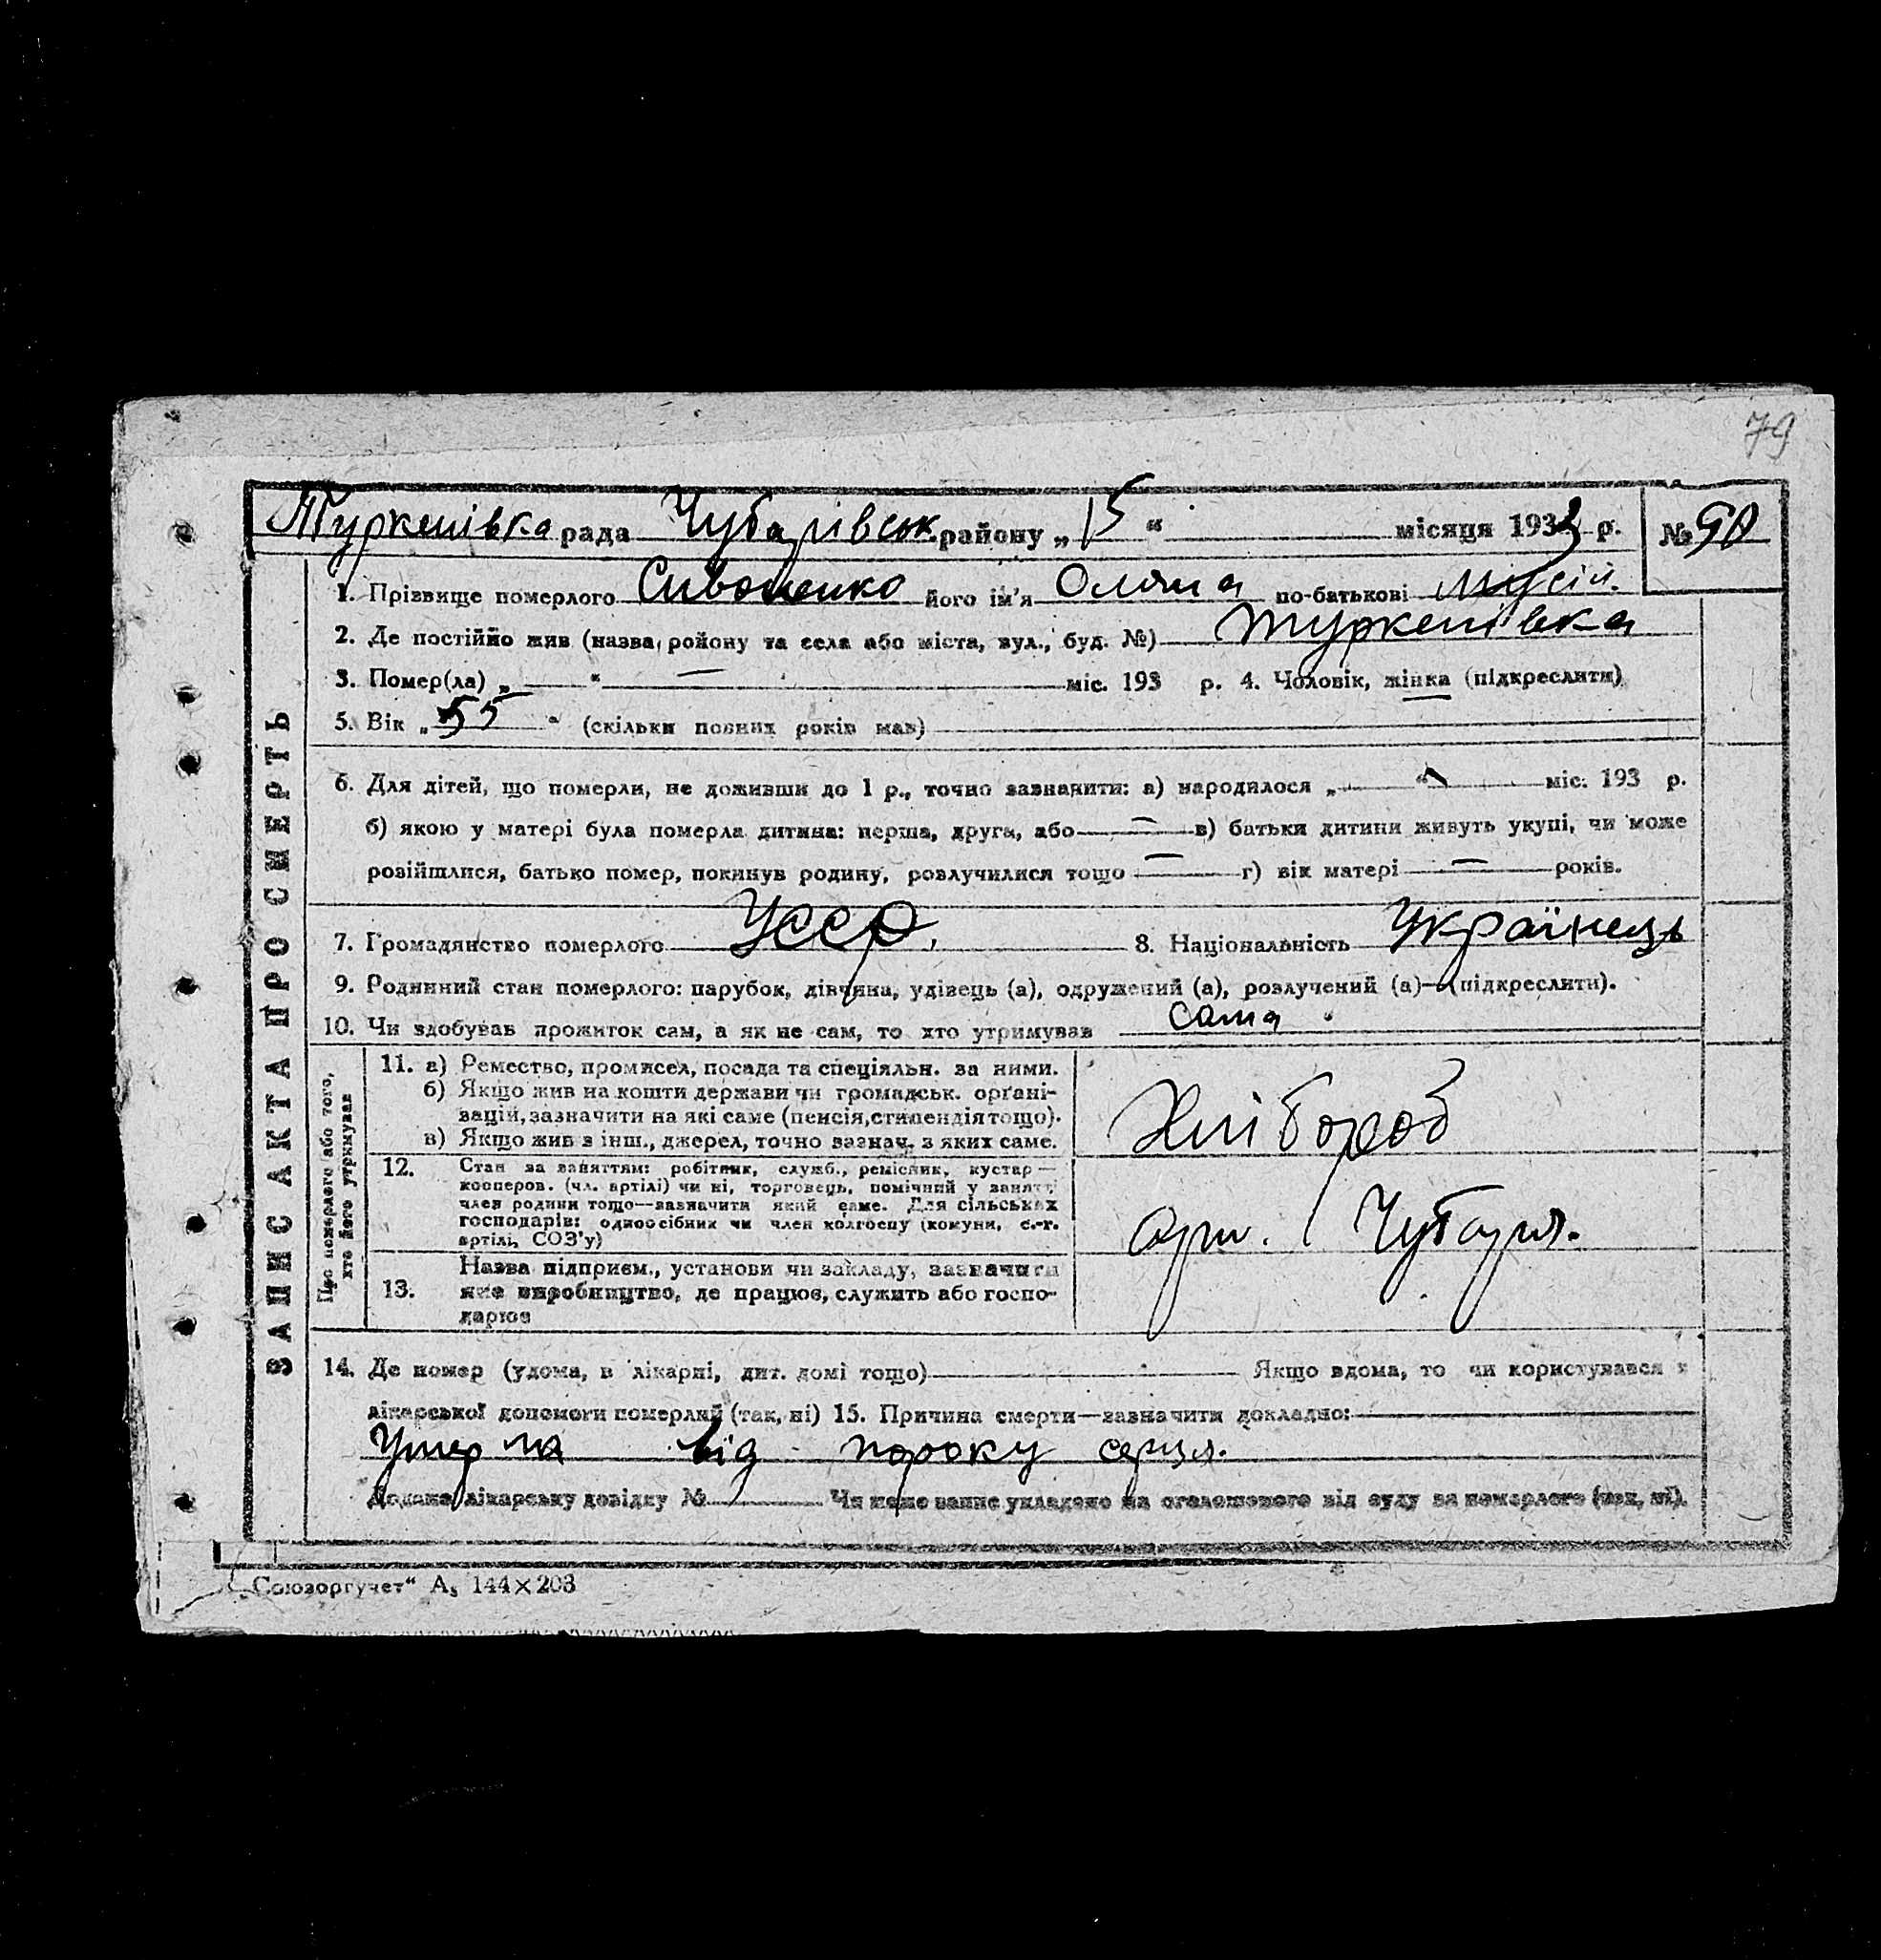 79
Туркенівка рада Чубарівськ району „15“ місяця 1933 р. № 90
1. Прізвище померлого Сивоненко його ім'я Оляна по-батькові Мусій.
2. Де постійно жив (назва ройону та села або міста, вул., буд. №) Туркенівка
3. Помер(ла) „ — “ — міс. 193 р. 4. Чоловік, жінка (підкреслити)
5. Вік „ 55 “ (скільки повних років мав)
6. Для дітей, що померли, не доживши до 1 р., точно зазначити: а) народилося „ “ міс. 193 р.
б) якою у матері була померла дитина: перша, друга, або — в) батьки дитини живуть укупі, чи може
розійшлися, батько помер, покинув родину, розлучилися тощо — г) вік матері — років.
7. Громадянство померлого УССР, 8. Національність Українець
9. Родинний стан померлого: парубок, дівчина, удівець (а), одружений (а), розлучений (а)—(підкреслити).
10. Чи здобував прожиток сам, а як не сам, то хто утримував сама
ЗАПИС АКТА ПРО СМЕРТЬ
Про померлого або того,
хто його утримував
11. а) Ремество, промисел, посада та спеціяльн. за ними.
б) Якщо жив на кошти держави чи громадськ. орґані-
зацій, зазначити на які саме (пенсія, стипендія тощо).
в) Якщо жив з інш., джерел, точно зазнач. з яких саме.
Хлібороб
12. Стан за заняттям: робітник, служб., ремісник, кустар—
кооперов. (чл. артілі) чи ні, торговець, помічний у занятті
член родини тощо—зазначити який саме. Для сільських
господарів: одноосібник чи член колгоспу (комуни, с.-г.
артілі, СОЗ'у)
арт. Чубаря.
13. Назва підприєм., установи чи закладу, зазначити
яке виробництво, де працює, служить або госпо-
дарює
14. Де помер (удома, в лікарні, дит. домі тощо) Якщо вдома, то чи користувався з
лікарської допомоги померлий (так, ні) 15. Причина смерти—зазначити докладно:
Умерла від пороку серця.
Додано лікарську довідку № Чи може запис укладено на оголошеного від суду за померлого (так, ні).
„Союзоргучет“ А₅ 144×203